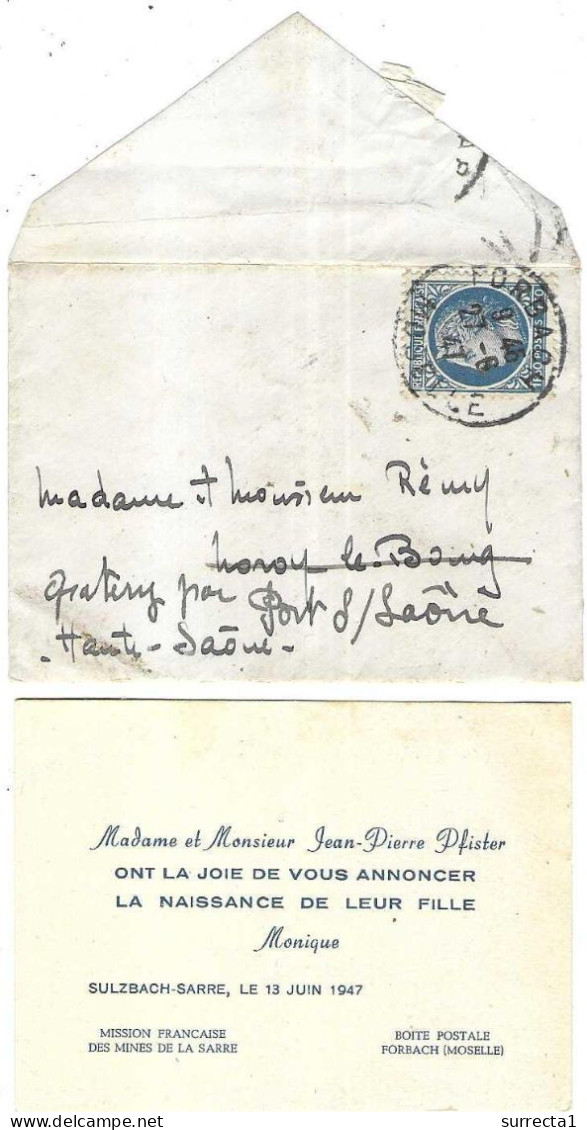 FORBACH
9 45
27 -6
47
MOSELLE
REPUBLIQUE FRANÇAISE
POSTES
Madame & Monsieur Rémy
Noroy-le-Bourg
par Port s/Saône
- Haute-Saône -
Madame et Monsieur Jean-Pierre Pfister
ONT LA JOIE DE VOUS ANNONCER
LA NAISSANCE DE LEUR FILLE
Monique
SULZBACH-SARRE, LE 13 JUIN 1947
MISSION FRANCAISE
DES MINES DE LA SARRE
BOITE POSTALE
FORBACH (MOSELLE)
delcampe.net
surrecta1